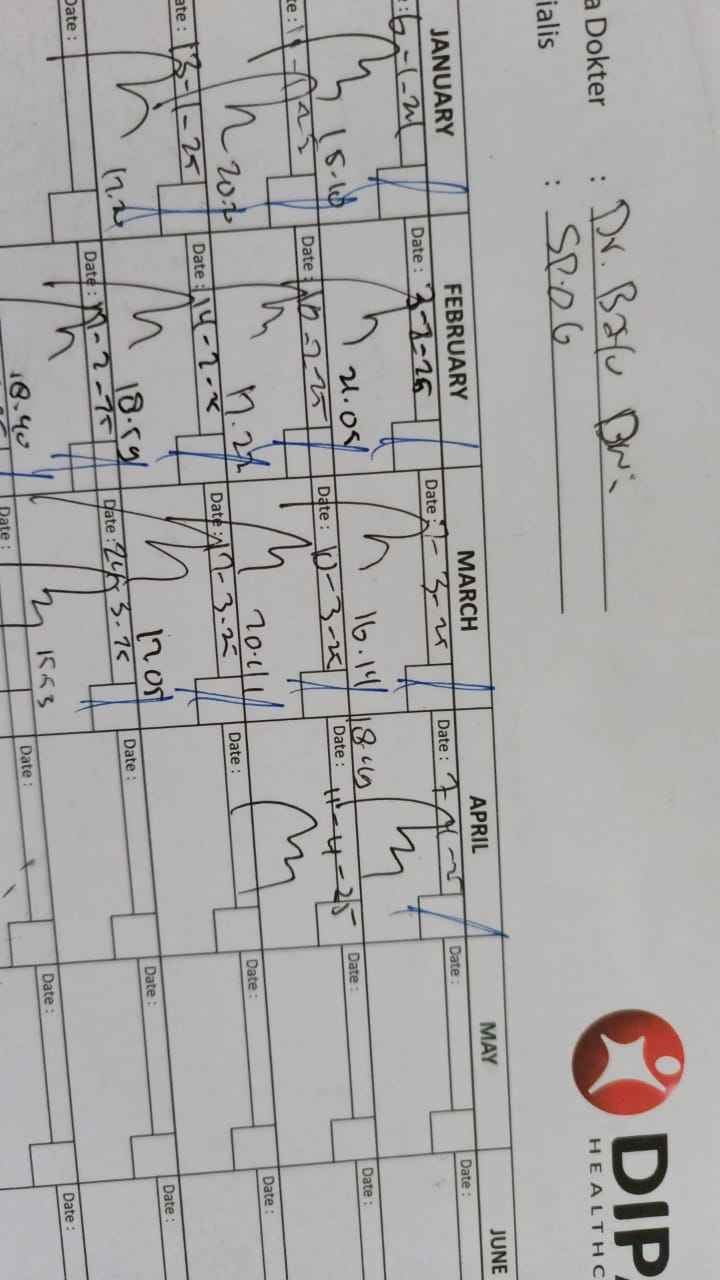 a Dokter : Dr. Bayu Dwi
ialis : SP.OG
DIPA
HEALTHC
JANUARY FEBRUARY MARCH APRIL MAY JUNE
Date : 3-2-25
Date : 7-3-25
Date : 7-4-25
Date :
Date :
15.10
21.05
16.14
18.49
Date : 10-2-25
Date : 10-3-25
Date : 11-4-25
Date :
Date :
20.20
17.22
20.11
ate : 13-1-25
Date : 14-2-25
Date : 17-3-25
Date :
Date :
Date :
17.20
18.59
17.05
Date :
Date : 17-2-25
Date : 24-3-25
Date :
Date :
Date :
18.40
15.53
Date :
Date :
Date :
Date :